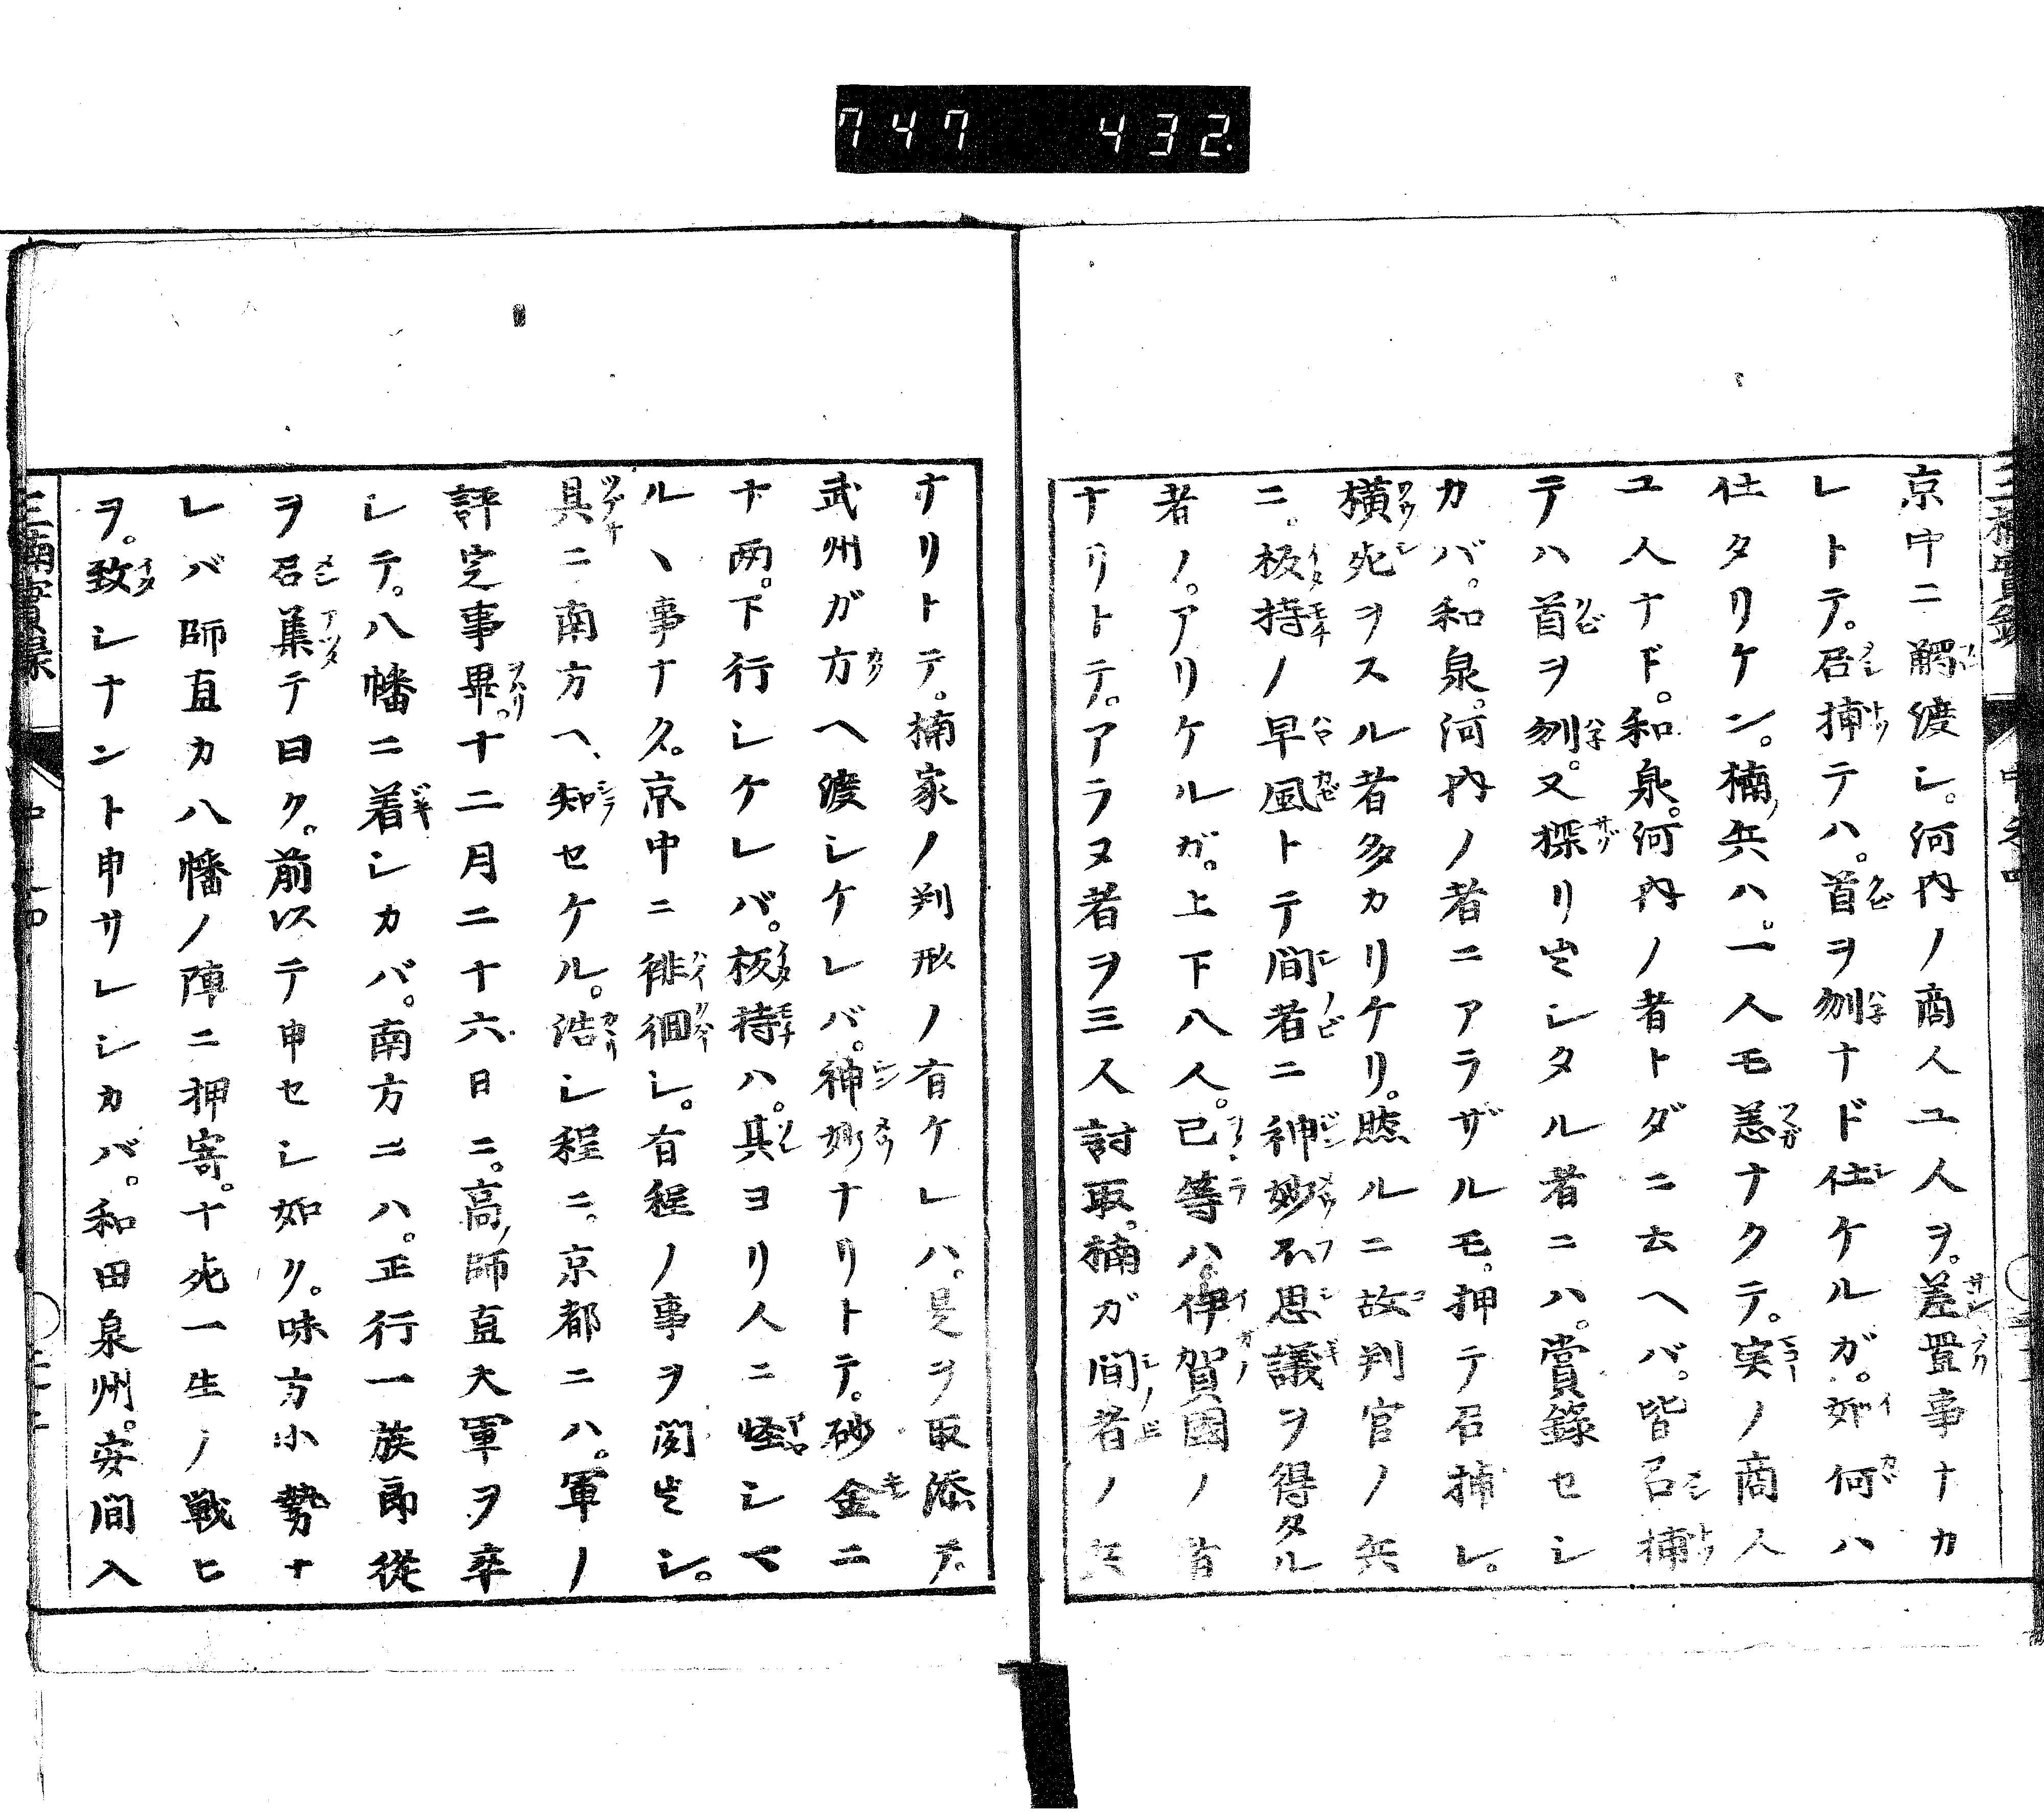 747 432.
京中ニ觸渡シ。河内ノ商人ユ人ヲ。差置事ナカ
レトテ。召捕テハ。首ヲ刎ナド仕ケルガ。如何ハ
仕タリケン。楠ノ兵ハ。一人モ恙ナクテ。実ノ商人
ユ人ナド。和泉。河内ノ者トダニ云ヘバ。皆召捕
テハ首ヲ刎。又探リ出シタル者ニハ。賞錄セシ
カバ。和泉。河内ノ者ニアラザルモ。押テ召捕レ。
横死ヲスル者多カリケリ。然ルニ故判官ノ兵
ニ。板持ノ早風トテ間者ニ神妙不思議ヲ得タル
者ノ。アリケルガ。上下八人。己等ハ伊賀國ノ者
ナリトテ。アラヌ者ヲ三人討取。楠ガ間者ノ兵
ナリトテ。楠家ノ判形ノ有ケレハ。是ヲ取添テ。
武州ガ方ヘ渡シケレバ。神妙ナリトテ。砂金二
十両。下行シケレバ。板持ハ。其ヨリ人ニ怪シマ
ルヽ事ナク。京中ニ徘徊シ。有程ノ事ヲ聞出シ。
具ニ南方ヘ知セケル。浩シ程ニ。京都ニハ。軍ノ
評定事畢。十二月二十六日ニ。高ノ師直大軍ヲ卒
シテ。八幡ニ着シカバ。南方ニハ。正行一族郎從
ヲ召集テ曰ク。前以テ申セシ如ク。味方小勢ナ
レバ師直カ八幡ノ陣ニ押寄。十死一生ノ戦ヒ
ヲ。致シナント申サレシカバ。和田泉州。安間入